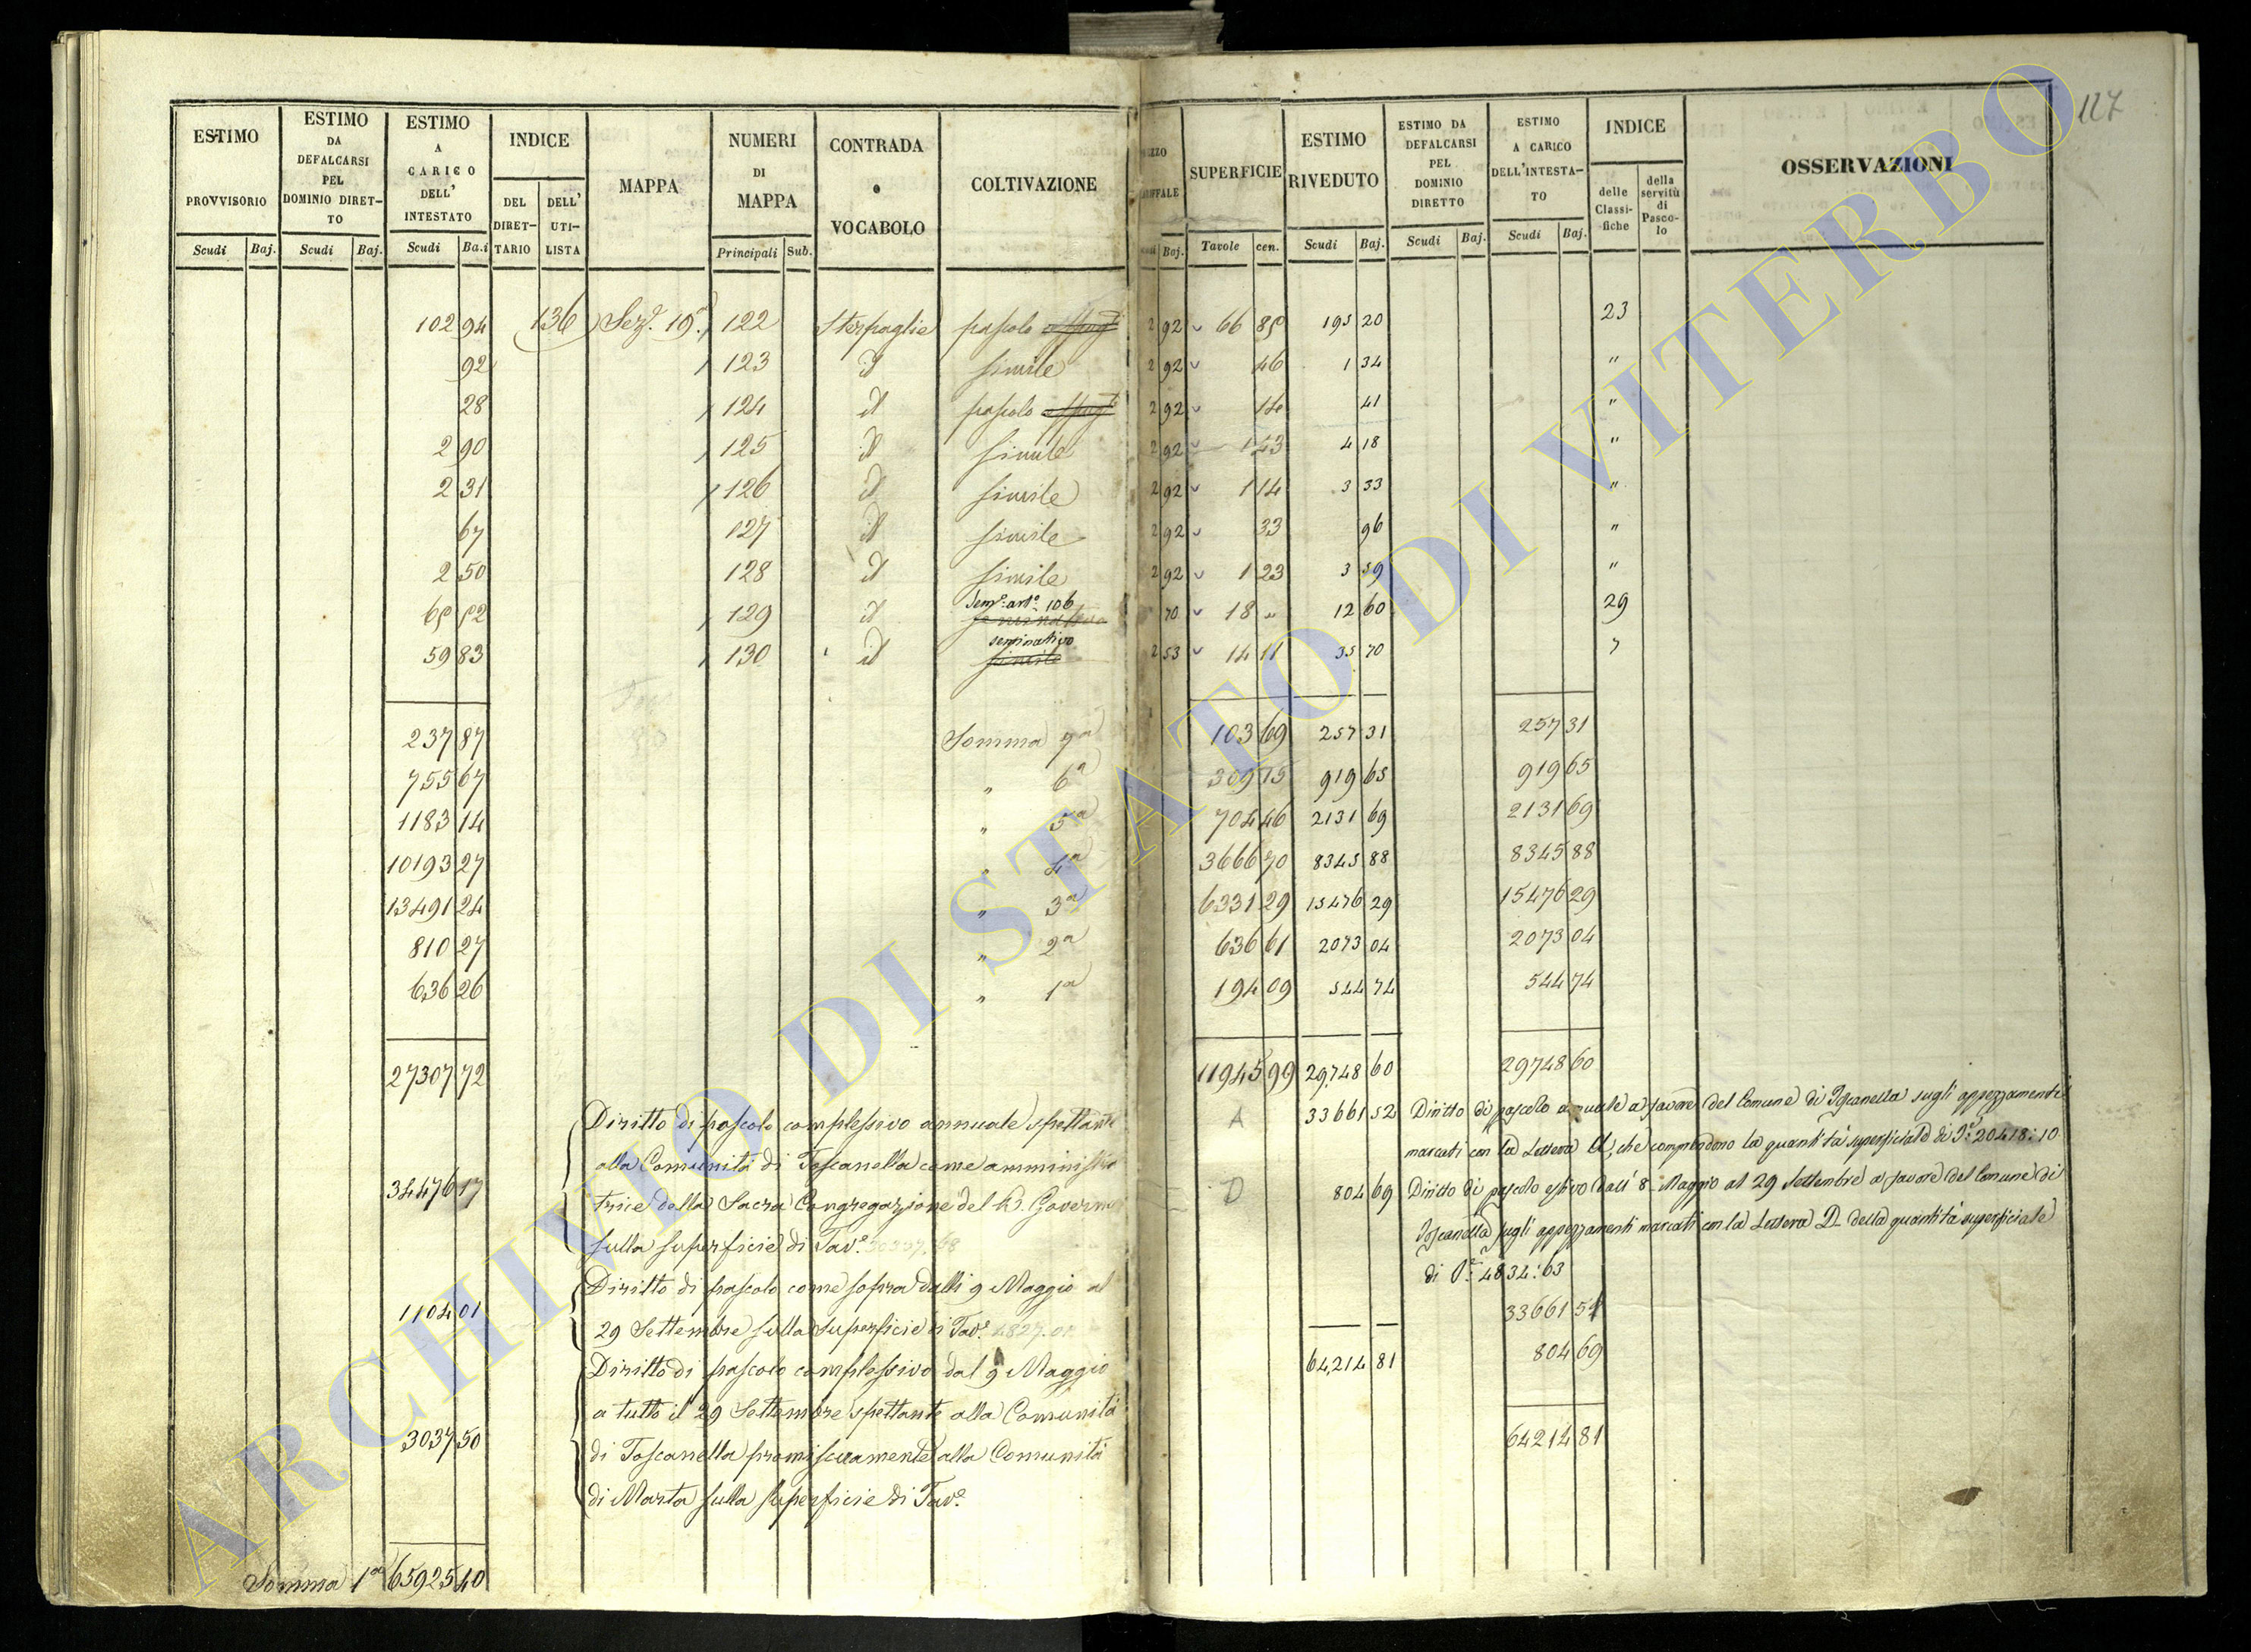 117
ESTIMO PROVVISORIO
Scudi Baj.
ESTIMO DA DEFALCARSI PEL DOMINIO DIRETTO
Scudi Baj.
ESTIMO A CARICO DELL' INTESTATO
Scudi Ba.i
INDICE
DEL DIRETTARIO
DELL' UTILISTA
MAPPA
NUMERI DI MAPPA
Principali Sub.
CONTRADA o VOCABOLO
COLTIVAZIONE
Baj.
SUPERFICIE
Tavole cen.
ESTIMO RIVEDUTO
Scudi Baj.
ESTIMO DA DEFALCARSI PEL DOMINIO DIRETTO
Scudi Baj.
ESTIMO A CARICO DELL'INTESTATO
Scudi Baj.
INDICE
delle Classifiche
della servitù di Pascolo
OSSERVAZIONI
102 94 136 Sez.e 10.a 122 Sterpaglie pascolo 2 92 66 85 195 20 23
92 123 id simile 2 92 46 1 34 "
28 124 id pascolo 2 92 14 41 "
2 90 125 id simile 2 92 1 43 4 18 "
2 31 126 id simile 2 92 1 14 3 33 "
67 127 id simile 2 92 33 96 "
2 50 128 id simile 2 92 1 23 3 59 "
65 52 129 id Sem.o art.o 106 70 18 " 12 60 29
59 83 130 id seminativo simile 2 53 14 11 35 70 7
237 87 Somma 7a 103 69 257 31 257 31
755 67 " 6a 309 15 919 65 919 65
1183 14 " 5a 704 46 2131 69 2131 69
10193 27 " 4a 3666 70 8345 88 8345 88
13491 24 " 3a 6331 29 15476 29 15476 29
810 27 " 2a 636 61 2073 04 2073 04
636 26 " 1a 194 09 544 74 544 74
27307 72 11945 99 29748 60 29748 60
Diritto di pascolo complessivo annuale spettante
alla Comunità di Toscanella come amministra
34476 17 trice della Sacra Congregazione del B. Governo
sulla superficie di Tav.e
Diritto di pascolo come sopra dalli 9 Maggio al
1104 01
29 Settembre sulla superficie di Tav.e 4827.01
Diritto di pascolo complessivo dal 9 Maggio
a tutto il 29 Settembre spettante alla Comunità
3037 50
di Toscanella promiscuamente alla Comunità
di Marta sulla superficie di Tav.e
Somma 1a 65925 40
A 33661 52 Diritto di pascolo annuale a favore del Comune di Toscanella sugli appezzamenti
marcati con la Lettera A, che comprendono la quantità superficiale di T.e 20418:10
D 804 69 Diritto di pascolo estivo dall' 8 Maggio al 29 Settembre a favore del Comune di
Toscanella sugli appezzamenti marcati con la Lettera D della quantità superficiale
di T.e 4834:63
33661 52
804 69
64,214 81
64214 81
ARCHIVIO DI STATO DI VITERBO